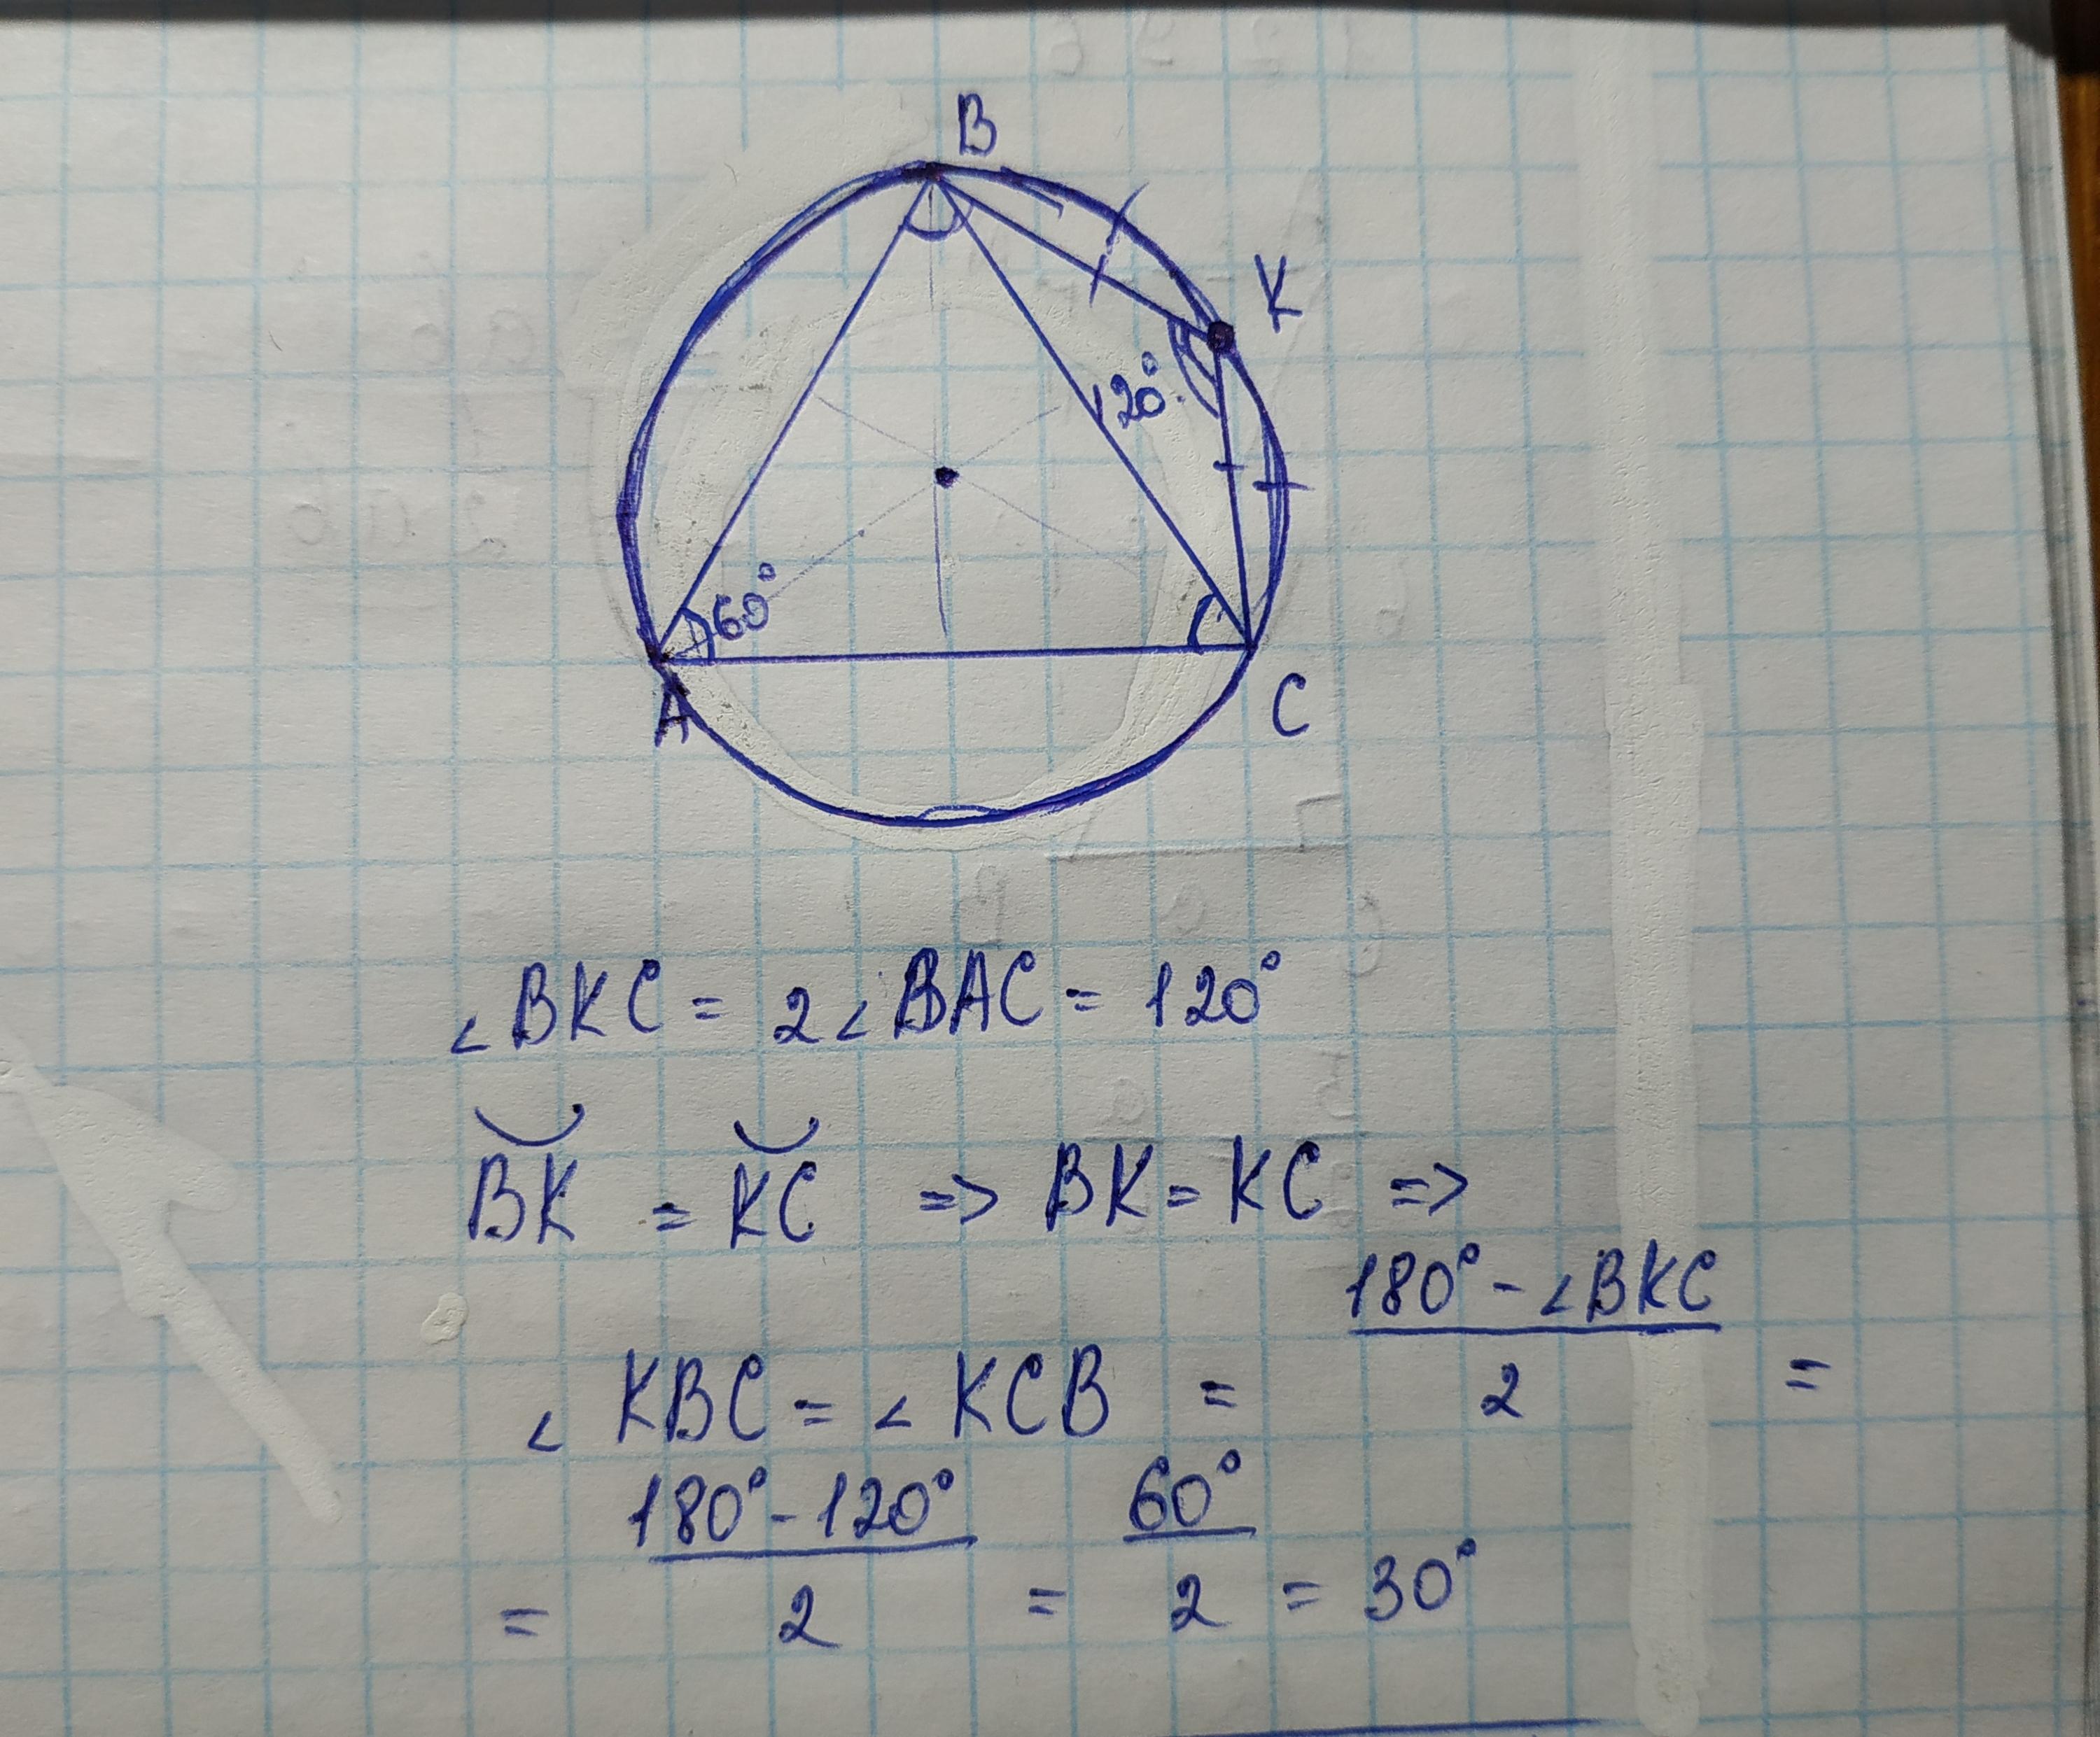 B
K
120°
60°
A
C
∠BKC = 2∠BAC = 120°
◡BK = ◡KC => BK = KC =>
∠KBC = ∠KCB = (180° - ∠BKC)/2 =
= (180° - 120°)/2 = 60°/2 = 30°